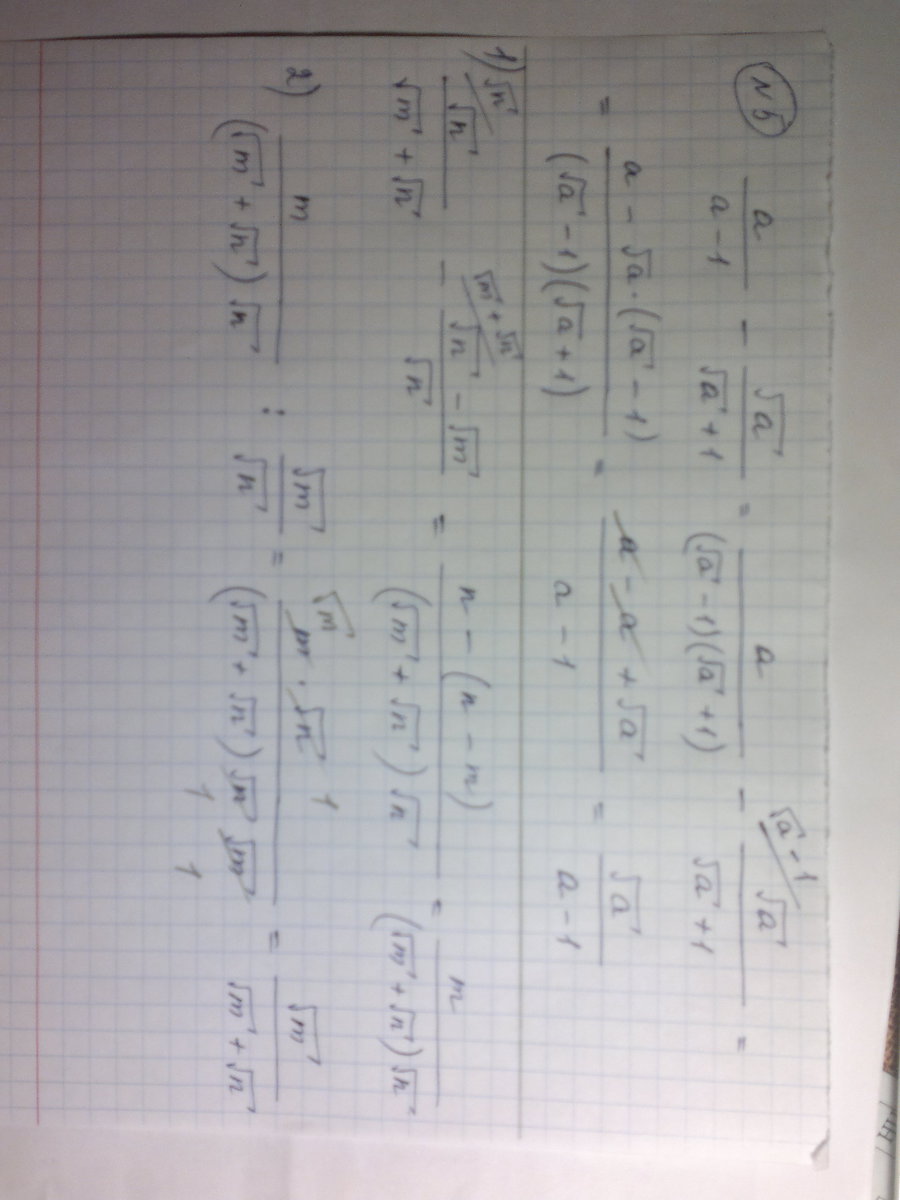 №5 a/(a-1) - √a/(√a+1) = a/((√a-1)(√a+1)) - √a-1/ √a/(√a+1) =
= (a-√a·(√a-1))/((√a-1)(√a+1)) = (a-a+√a)/(a-1) = √a/(a-1)
1) √n/ √n/(√m+√n) - √m+√n/ (√n-√m)/√n = (n-(n-m))/((√m+√n)√n) = m/((√m+√n)√n)
2) m/((√m+√n)√n) : √m/√n = √m m·√n 1/((√m+√n)√n √m) 1 1 = √m/(√m+√n)